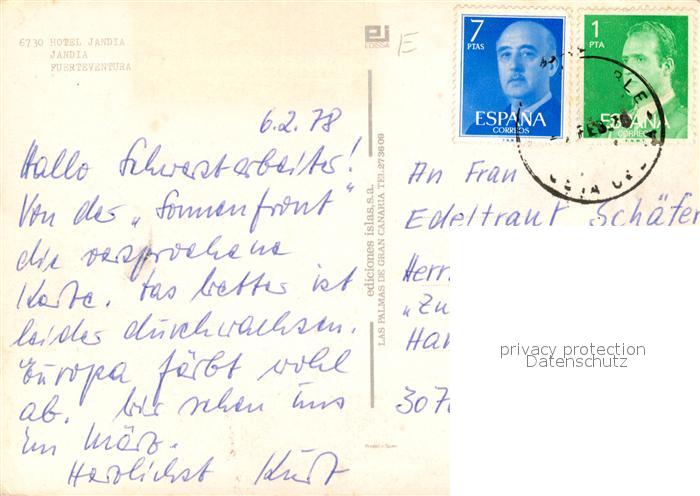 6730 HOTEL JANDIA
JANDIA
FUERTEVENTURA
EDISSA
E
7
PTAS
ESPAÑA
CORREOS
1
PTA
ESPAÑA
CORREOS
6.2.78
Hallo Schwerstarbeiter!
Von der „Sonnenfront"
die versprochene
Karte. Das Wetter ist
leider durchwachsen.
Europa färbt wohl
ab. Wir sehen uns
im März.
Herzlichst Kurt
ediciones islas, s.a.
LAS PALMAS DE GRAN CANARIA TEL. 273609
Printed in Spain
An Frau
Edeltraut Schäfer
Herr
„Zu
Han
307
privacy protection
Datenschutz